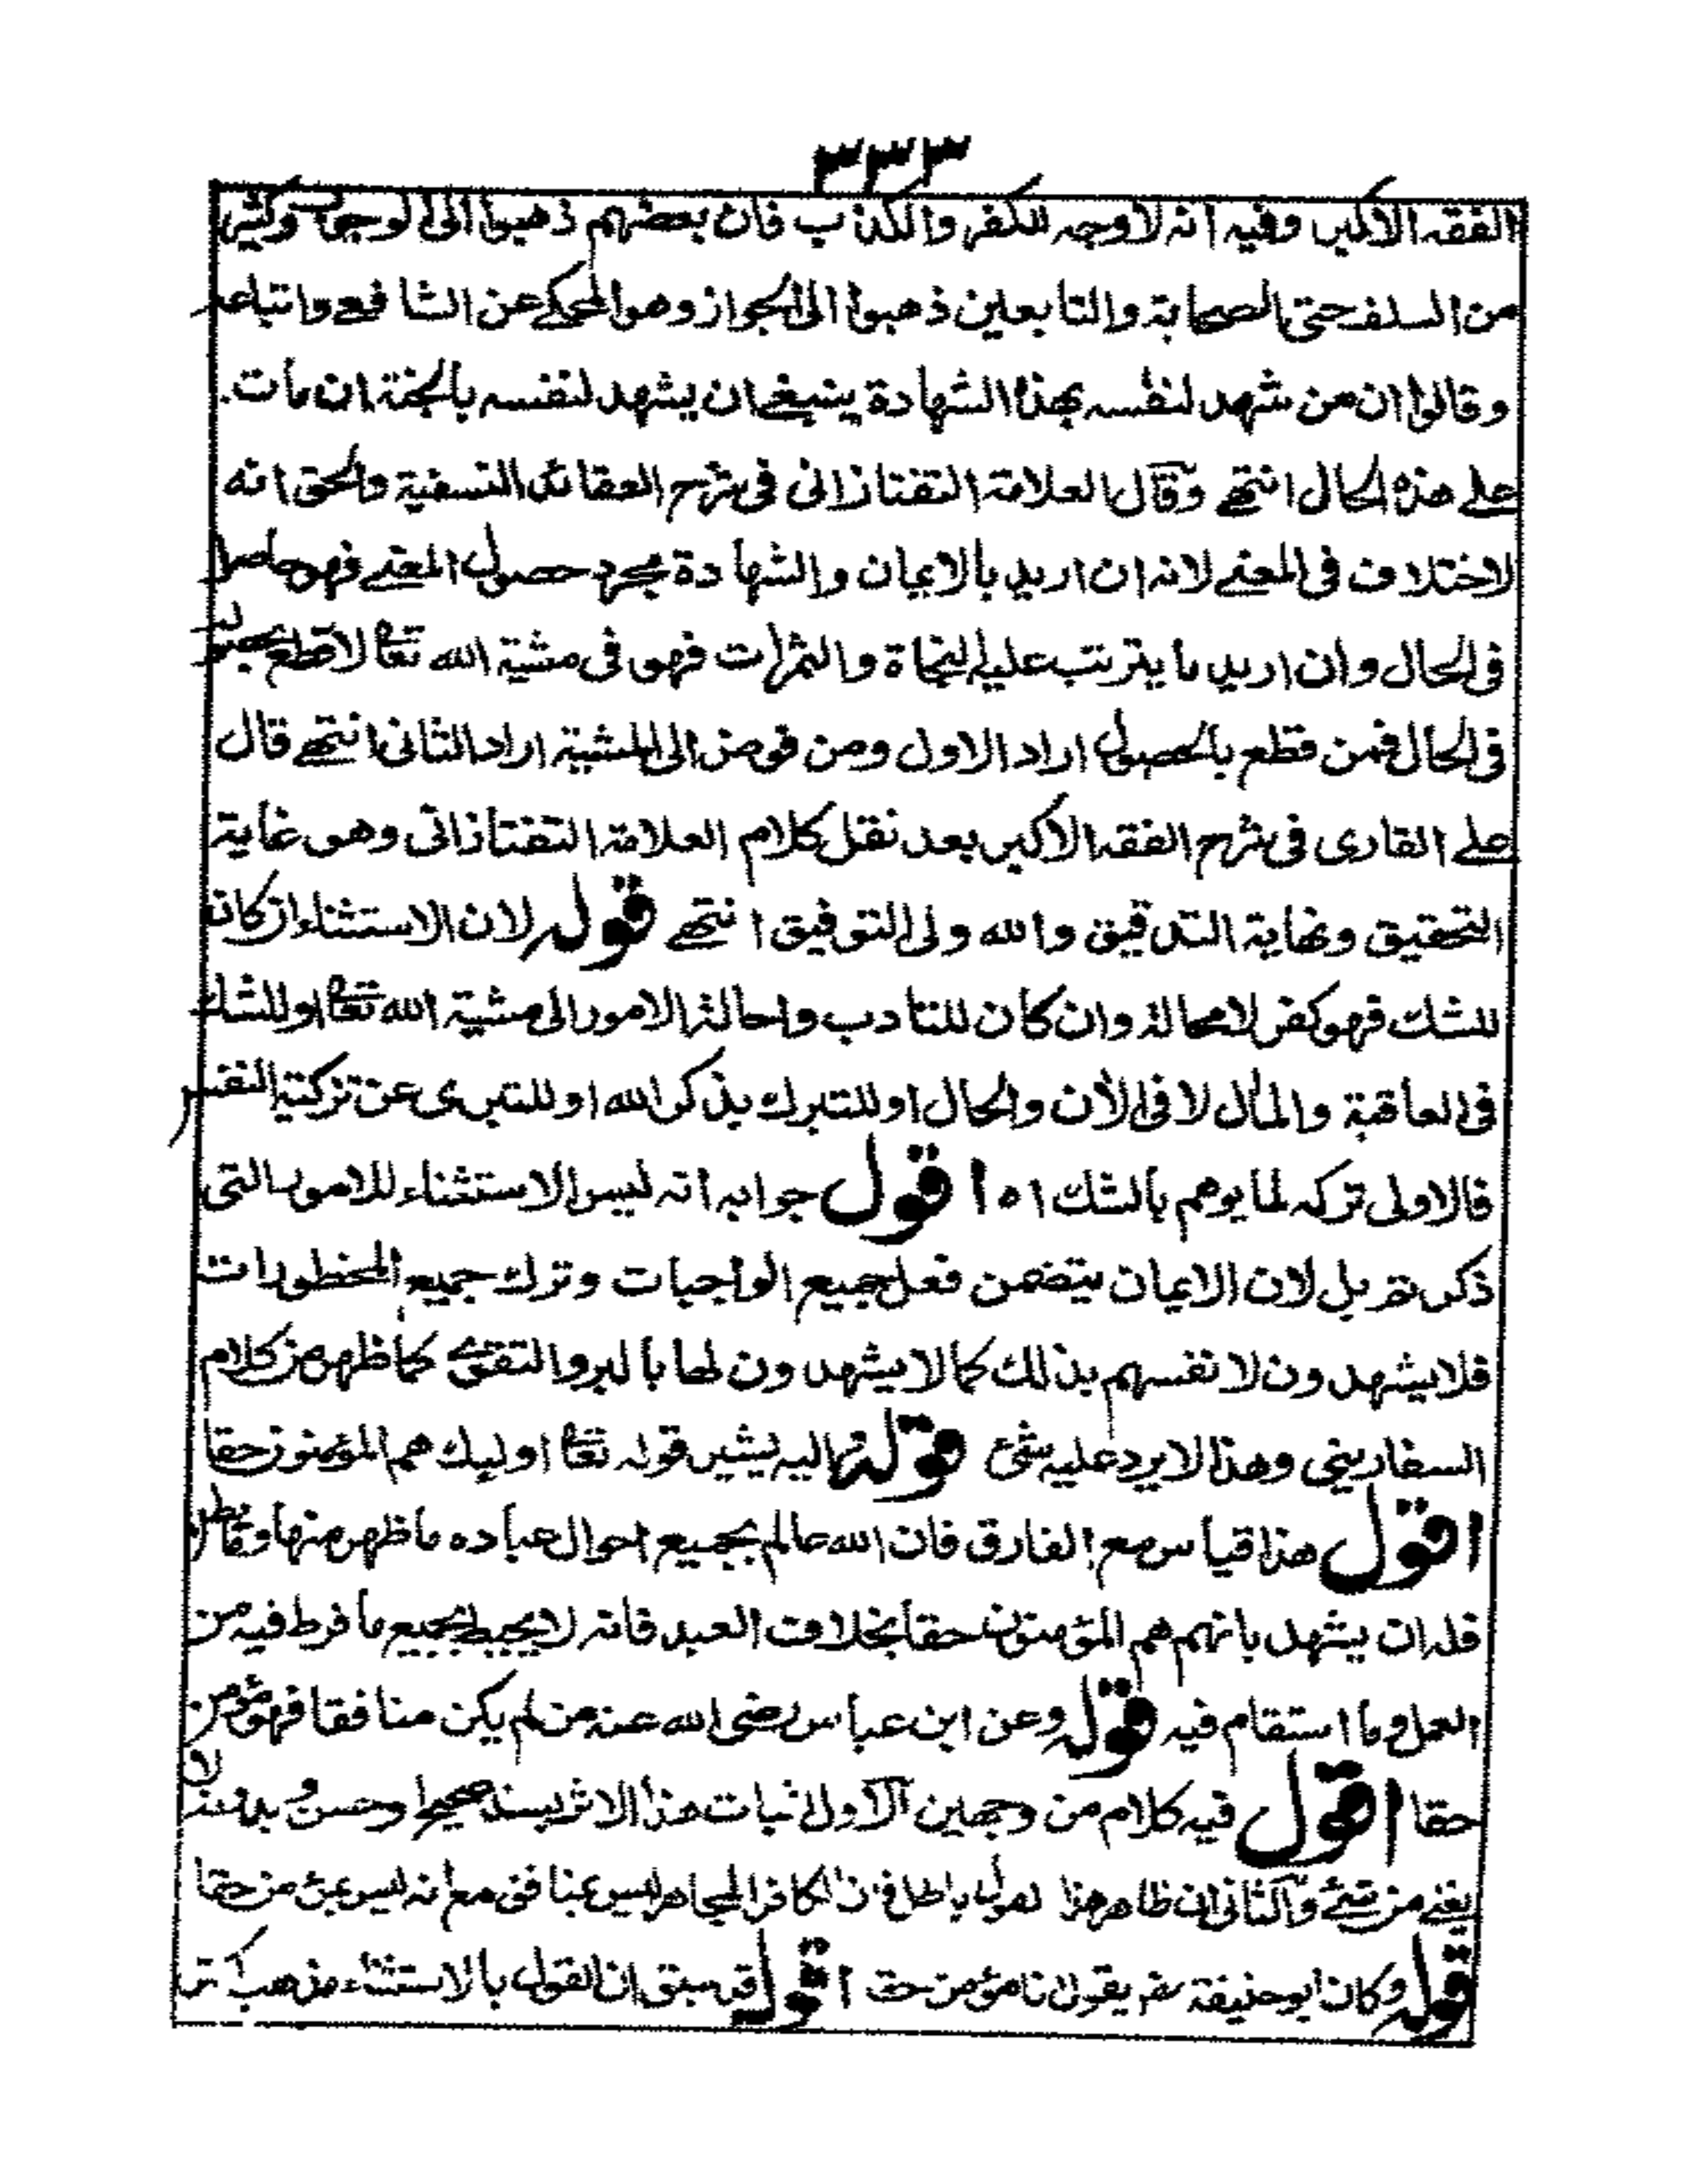 ٣٣٣
الفقه الاكبر وفيه انه لا وجه للكفر والكذب فان بعضهم ذهبوا الى الوجوب وكثير
من السلف حتى الصحابة والتابعين ذهبوا الى الجواز وهو المحكي عن الشافعے واتباعه
وقالوا ان من شهد لنفسه بهذه الشهادة ينبغے ان يشهد لنفسه بالجنة ان مات
علے هذه الحال انتهے وقال العلامة التفتازانى فى شرح العقائد النسفية والحق انه
لا خلاف فى المعنے لانه ان اريد بالايمان والشهادة مجرد حصول المعنے فهو حاصل
فى الحال وان اريد ما يترتب عليه النجاة والثمرات فهو فى مشية الله تعالى لا قطع بحصوله
فى الحال فمن قطع بالحصول اراد الاول ومن فوض الى المشية اراد الثانى انتهے قال
علے القارى فى شرح الفقه الاكبر بعد نقل كلام العلامة التفتازانى وهو غاية
التحقيق ونهاية التدقيق والله ولى التوفيق انتهے قوله لان الاستثناء ان كان
للشك فهو كفر لا محالة وان كان للتادب واحالة الامور الى مشية الله تعالى او للشك
فى العاقبة والمآل لا فى الآن والحال او للتبرك بذكر الله او للتبرى عن تزكية النفس
فالاولى تركه لما يوهم بالشك اه اقول جوابه انه ليس الاستثناء للامور التى
ذكرتم بل لان الايمان يتضمن فعل جميع الواجبات وترك جميع المحظورات
فلا يشهدون لانفسهم بذلك كما لا يشهدون لها بالبر والتقوے كما ظهر من كلام
السفارينى وهذا لا يرد عليه شئ قوله واليه يشير قوله تعالى اوليك هم المؤمنون حقا
اقول هذا قياس مع الفارق فان الله عالم بجميع احوال عباده ما ظهر منها وما بطن
فله ان يشهد بانهم هم المؤمنون حقا بخلاف العبد فانه لا يحيط بجميع ما فرط فيه من
العمل وما استقام فيه قوله وعن ابن عباس رضى الله عنه من لم يكن منافقا فهو مؤمن
حقا اقول فيه كلام من وجهين الاول اثبات هذا الاثر بسند صحيح او حسن و بدونه لا
يغنے من شئے والثانى ان ظاهر هذا القول باطل فان الكافر المجاهر ليس بمنافق مع انه ليس بمؤمن حقا
قوله وكان ابو حنيفة رح يقول انا مؤمن حقا اقول قد سبق ان القول بالاستثناء مذهب اكثر